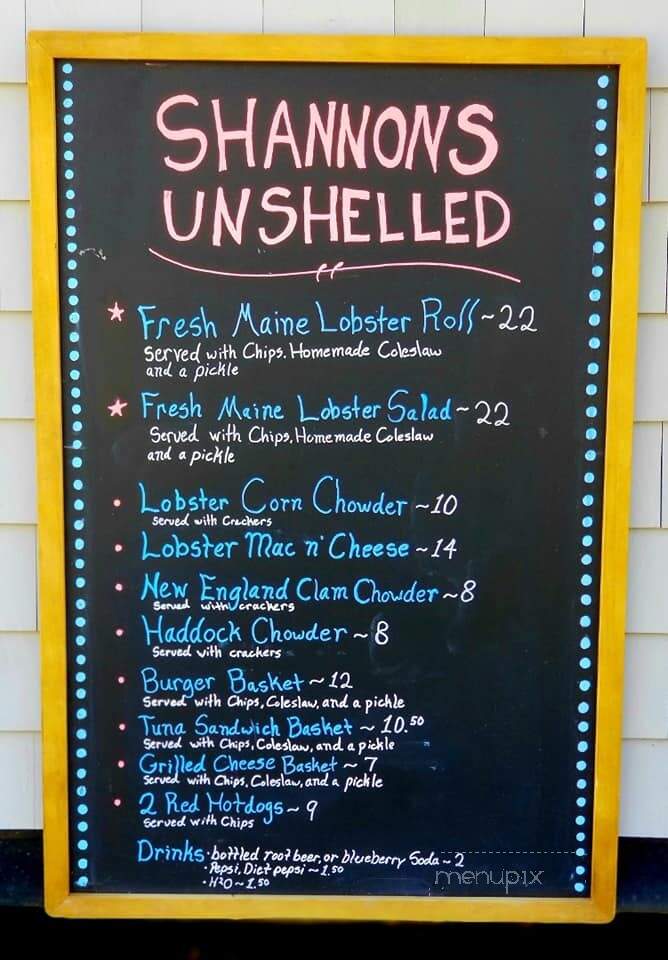 SHANNONS
UNSHELLED
Fresh Maine Lobster Roll ~22
Served with Chips, Homemade Coleslaw
and a pickle
Fresh Maine Lobster Salad ~ 22
Served with Chips, Homemade Coleslaw
and a pickle
Lobster Corn Chowder ~10
Served with Crackers
Lobster Mac n' Cheese ~14
New England Clam Chowder ~8
Served with crackers
Haddock Chowder ~ 8
Served with crackers
Burger Basket ~ 12
Served with Chips, Coleslaw, and a pickle
Tuna Sandwich Basket ~ 10.50
Served with Chips, Coleslaw, and a pickle
Grilled Cheese Basket ~ 7
Served with Chips, Coleslaw, and a pickle
2 Red Hotdogs ~ 9
Served with Chips
Drinks • bottled root beer, or blueberry Soda ~ 2
• Pepsi, Diet pepsi ~ 1.50
• H2O ~ 1.50
menupix